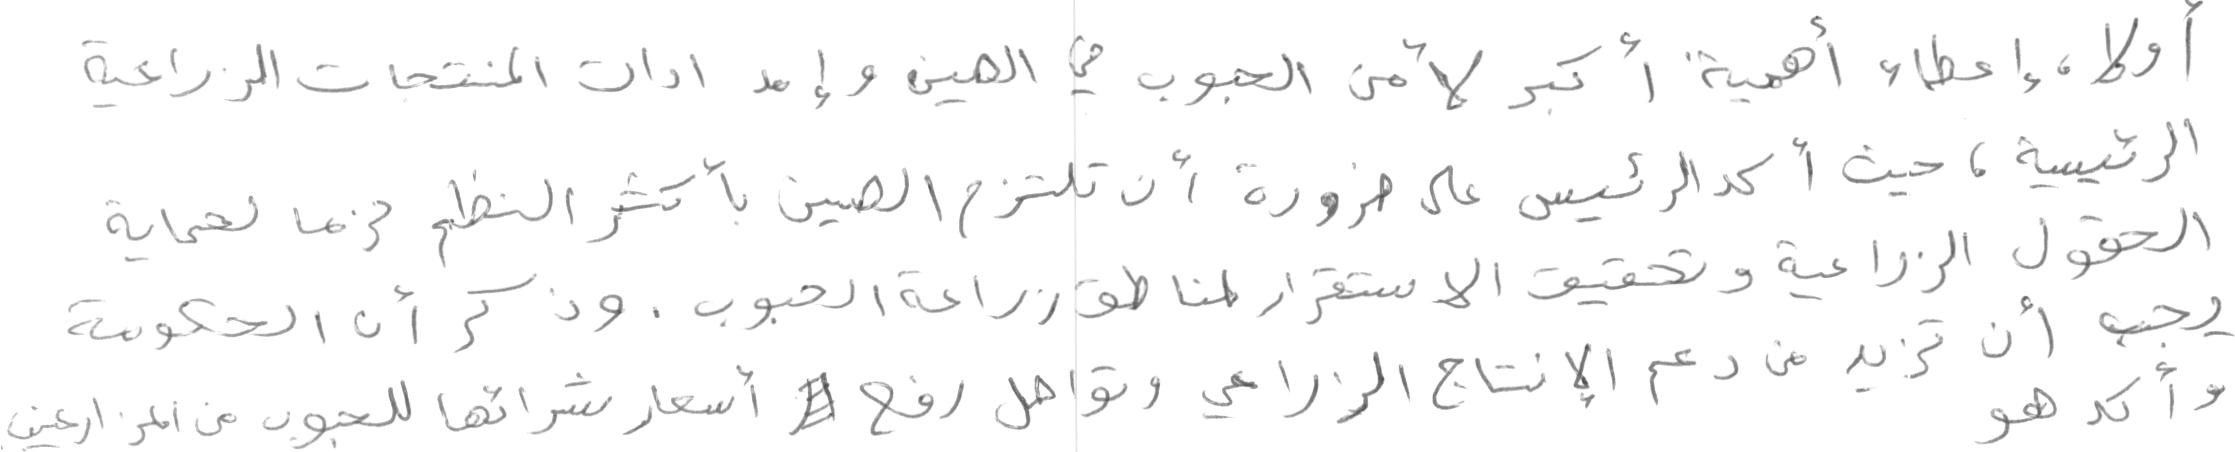 أولا، إعطاء أهمية أكبر لأمن الحبوب في الصين وإمدادات المنتجات الزراعية
الرئيسية، حيث أكد الرئيس على ضرورة أن تلتزم الصين بأكثر النظم حزما لحماية
الحقول الزراعية وتحقيق الاستقرار لمناطق زراعة الحبوب. وذكر أن الحكومة
يجب أن تزيد من دعم الإنتاج الزراعي وتواصل رفع أسعار شرائها للحبوب من المزارعين
وأكد هو